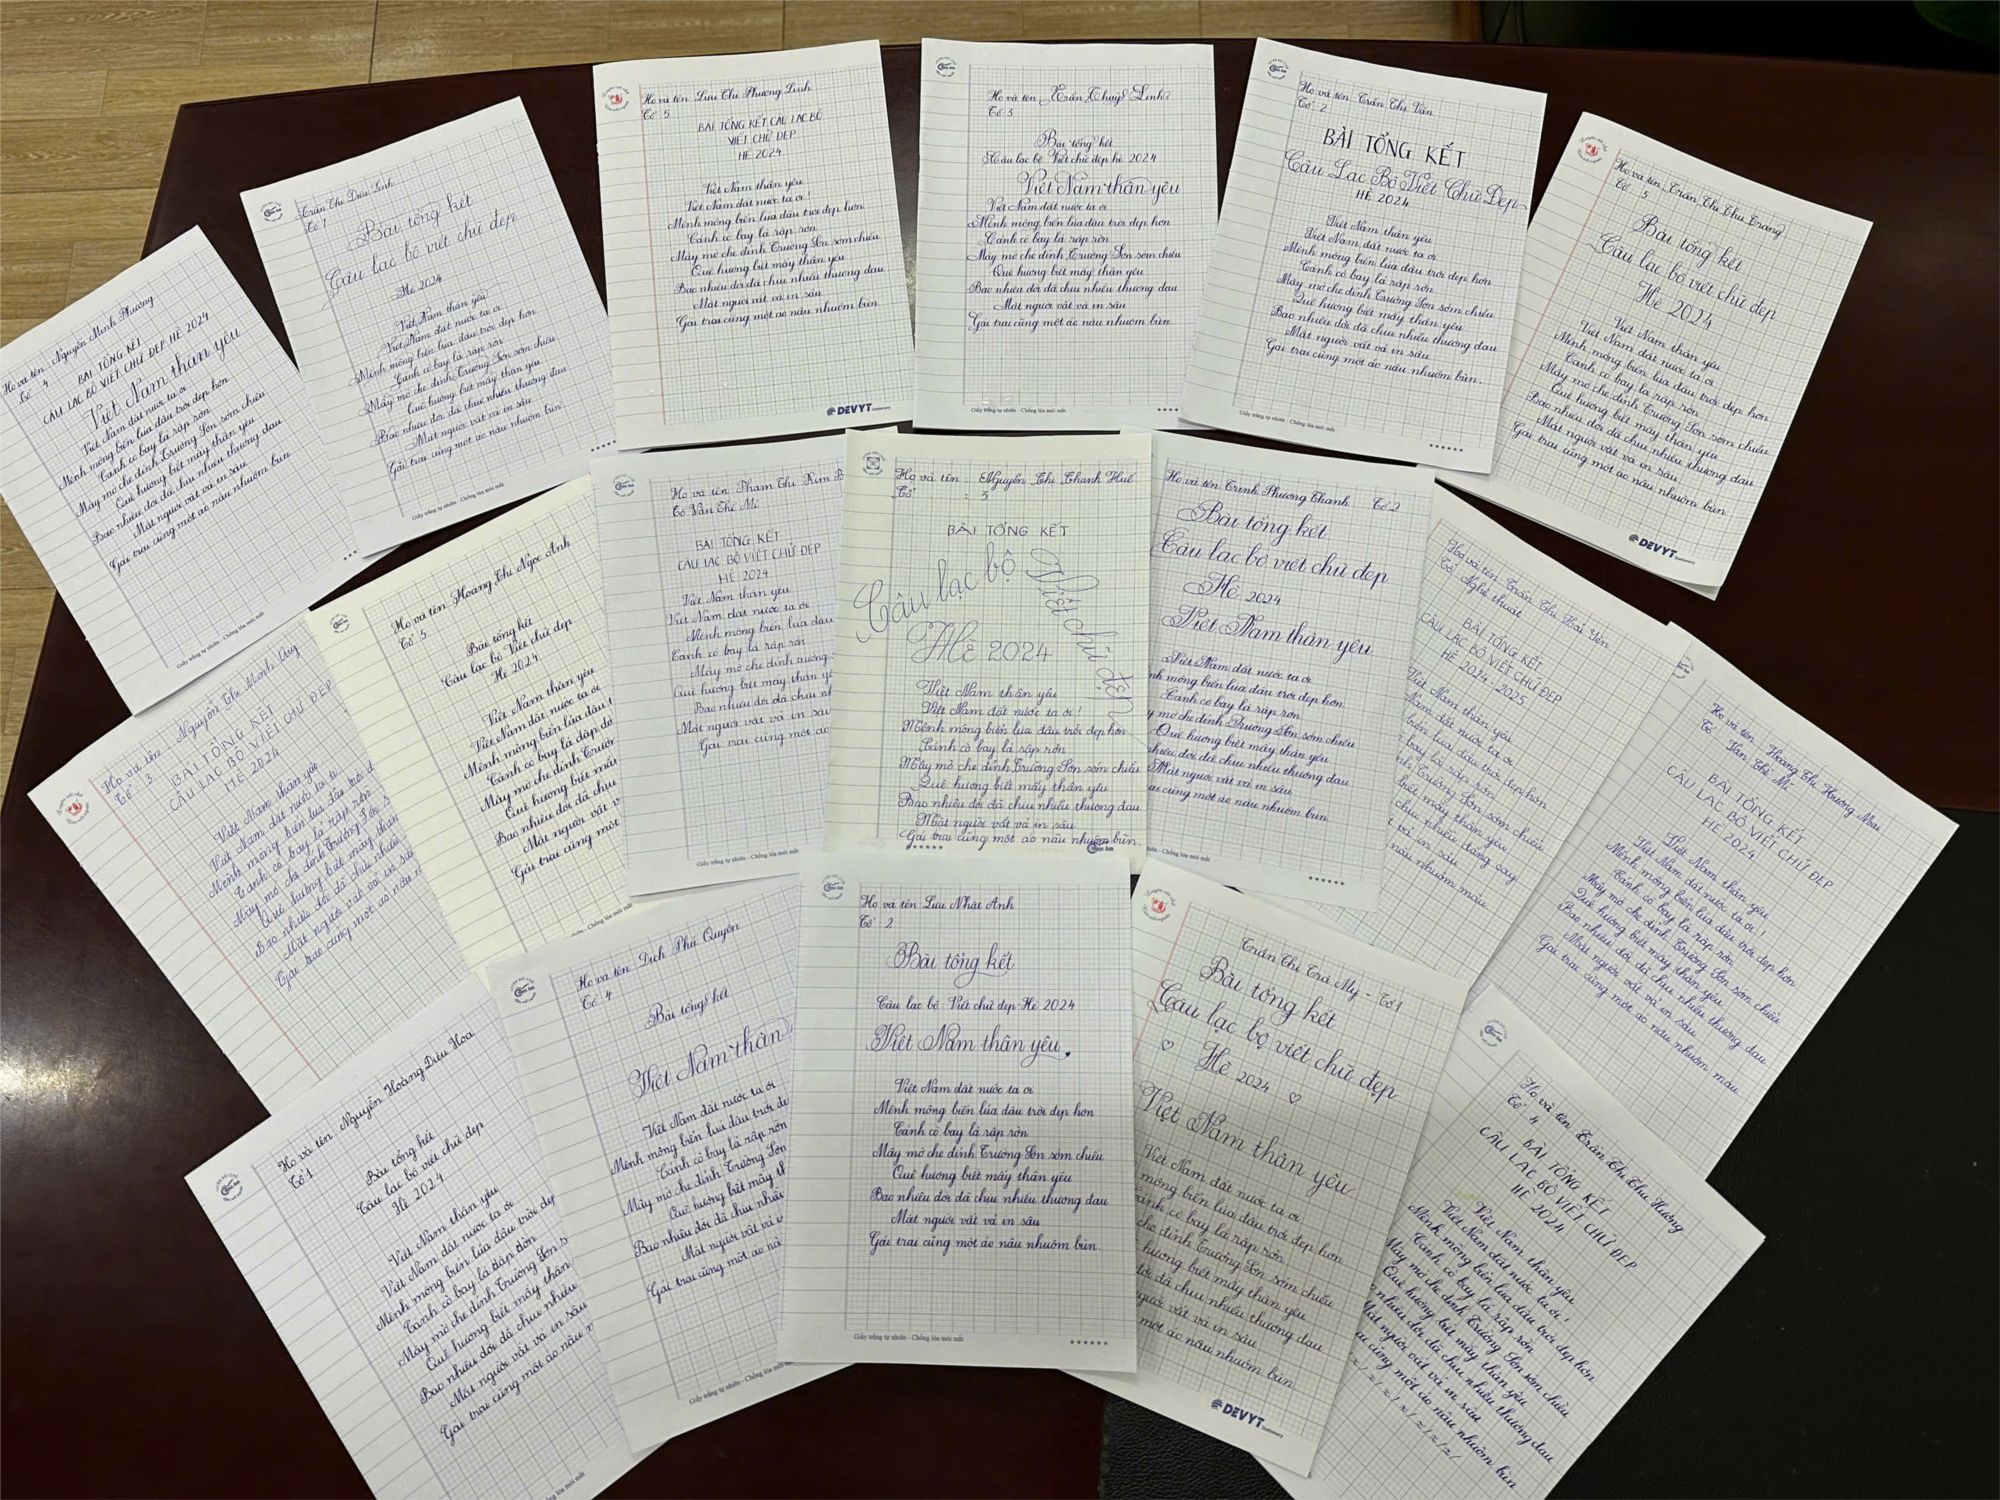 Họ và tên Nguyễn Minh Phương
Tổ 4
BÀI TỔNG KẾT
CÂU LẠC BỘ VIẾT CHỮ ĐẸP HÈ 2024
Việt Nam thân yêu
Việt Nam đất nước ta ơi
Mênh mông biển lúa đâu trời đẹp hơn
Cánh cò bay lả rập rờn
Mây mờ che đỉnh Trường Sơn sớm chiều
Quê hương biết mấy thân yêu
Bao nhiêu đời đã chịu nhiều thương đau
Mặt người vất vả in sâu
Gái trai cũng một áo nâu nhuộm bùn
Giấy trắng tự nhiên - Chống lóa mỏi mắt
Trần Thị Diệu Linh
Tổ 1
Bài tổng kết
Câu lạc bộ viết chữ đẹp
Hè 2024
Việt Nam thân yêu
Việt Nam đất nước ta ơi
Mênh mông biển lúa đâu trời đẹp hơn
Cánh cò bay lả rập rờn
Mây mờ che đỉnh Trường Sơn sớm chiều
Quê hương biết mấy thân yêu
Bao nhiêu đời đã chịu nhiều thương đau
Mặt người vất vả in sâu
Gái trai cũng một áo nâu nhuộm bùn
Giấy trắng tự nhiên - Chống lóa mỏi mắt
Họ và tên Lưu Thị Phương Linh
Tổ 5
BÀI TỔNG KẾT CÂU LẠC BỘ
VIẾT CHỮ ĐẸP
HÈ 2024
Việt Nam thân yêu
Việt Nam đất nước ta ơi!
Mênh mông biển lúa đâu trời đẹp hơn
Cánh cò bay lả rập rờn
Mây mờ che đỉnh Trường Sơn sớm chiều
Quê hương biết mấy thân yêu
Bao nhiêu đời đã chịu nhiều thương đau
Mặt người vất vả in sâu
Gái trai cũng một áo nâu nhuộm bùn
DEVYT Stationery
Họ và tên Trần Thuỳ Linh
Tổ 3
Bài tổng kết
Câu lạc bộ Viết chữ đẹp hè 2024
Việt Nam thân yêu
Việt Nam đất nước ta ơi
Mênh mông biển lúa đâu trời đẹp hơn
Cánh cò bay lả rập rờn
Mây mờ che đỉnh Trường Sơn sớm chiều
Quê hương biết mấy thân yêu
Bao nhiêu đời đã chịu nhiều thương đau
Mặt người vất vả in sâu
Gái trai cũng một áo nâu nhuộm bùn
Giấy trắng tự nhiên - Chống lóa mỏi mắt
Họ và tên Trần Thị Vân
Tổ 2
BÀI TỔNG KẾT
Câu Lạc Bộ Viết Chữ Đẹp
HÈ 2024
Việt Nam thân yêu
Việt Nam đất nước ta ơi
Mênh mông biển lúa đâu trời đẹp hơn
Cánh cò bay lả rập rờn
Mây mờ che đỉnh Trường Sơn sớm chiều
Quê hương biết mấy thân yêu
Bao nhiêu đời đã chịu nhiều thương đau
Mặt người vất vả in sâu
Gái trai cũng một áo nâu nhuộm bùn.
Giấy trắng tự nhiên - Chống lóa mỏi mắt
Họ và tên Trần Thị Thu Trang
Tổ 5
Bài tổng kết
Câu lạc bộ viết chữ đẹp
Hè 2024
Việt Nam thân yêu
Việt Nam đất nước ta ơi
Mênh mông biển lúa đâu trời đẹp hơn
Cánh cò bay lả rập rờn
Mây mờ che đỉnh Trường Sơn sớm chiều
Quê hương biết mấy thân yêu
Bao nhiêu đời đã chịu nhiều thương đau
Mặt người vất vả in sâu
Gái trai cũng một áo nâu nhuộm bùn
DEVYT Stationery
Họ và tên: Nguyễn Thị Minh Quý
Tổ 3
BÀI TỔNG KẾT
CÂU LẠC BỘ VIẾT CHỮ ĐẸP
HÈ 2024
Việt Nam thân yêu
Việt Nam đất nước ta
Mênh mông biển lúa đâu trời đ
Cánh cò bay lả rập rờn
Mây mờ che đỉnh Trường Sơn s
Quê hương biết mấy thân
Bao nhiêu đời đã chịu nhiều
Mặt người vất vả in sâu
Gái trai cũng một áo nâu n
Họ và tên Hoàng Thị Ngọc Anh
Tổ 5
Bài tổng kết
Câu lạc bộ Viết chữ đẹp
Hè 2024
Việt Nam thân yêu
Việt Nam đất nước ta ơi
Mênh mông biển lúa đâu t
Cánh cò bay lả dập dờ
Mây mờ che đỉnh Trườn
Quê hương biết mấ
Bao nhiêu đời đã chịu
Mặt người vất v
Gái trai cũng một
Họ và tên Phạm Thị Kim B
Tổ Văn Thể Mĩ
BÀI TỔNG KẾT
CÂU LẠC BỘ VIẾT CHỮ ĐẸP
HÈ 2024
Việt Nam thân yêu
Việt Nam đất nước ta ơi
Mênh mông biển lúa đâu
Cánh cò bay lả rập rờn
Mây mờ che đỉnh
Quê hương biết mấy thân y
Bao nhiêu đời đã chịu nh
Mặt người vất vả in sâu
Gái trai cũng một áo
Giấy trắng tự nhiên - Chống lóa mỏi mắt
Họ và tên : Nguyễn Thị Thanh Huế
Tổ : 3
BÀI TỔNG KẾT
Câu lạc bộ Viết chữ đẹp
Hè 2024
Việt Nam thân yêu
Việt Nam đất nước ta ơi!
Mênh mông biển lúa đâu trời đẹp hơn
Cánh cò bay lả rập rờn
Mây mờ che đỉnh Trường Sơn sớm chiều
Quê hương biết mấy thân yêu
Bao nhiêu đời đã chịu nhiều thương đau
Mặt người vất vả in sâu
Gái trai cũng một áo nâu nhuộm bùn.
Họ và tên Trịnh Phương Thanh Tổ 2
Bài tổng kết
Câu lạc bộ viết chữ đẹp
Hè 2024
Việt Nam thân yêu
Việt Nam đất nước ta ơi
nh mông biển lúa đâu trời đẹp hơn
Cánh cò bay lả rập rờn
y mờ che đỉnh Trường Sơn sớm chiều
Quê hương biết mấy thân yêu
nhiêu đời đã chịu nhiều thương đau
Mặt người vất vả in sâu
ai cũng một áo nâu nhuộm bùn
Họ và tên Trần Thị Hải Yến
Tổ Nghệ thuật
BÀI TỔNG KẾT
CÂU LẠC BỘ VIẾT CHỮ ĐẸP
HÈ 2024 - 2025
Việt Nam thân yêu
Nam đất nước ta ơi
biển lúa đâu trời đẹp hơn
bay lả rập rờn
đỉnh Trường Sơn sớm chiều
biết mấy thân yêu
chịu nhiều đắng cay
t vả in sâu
nâu nhuộm màu
Họ và tên Hoàng Thị Hương Mai
Tổ Văn Thể Mĩ
BÀI TỔNG KẾT
CÂU LẠC BỘ VIẾT CHỮ ĐẸP
HÈ 2024
Việt Nam thân yêu
Việt Nam đất nước ta ơi!
Mênh mông biển lúa đâu trời đẹp hơn
Cánh cò bay lả rập rờn
Mây mờ che đỉnh Trường Sơn sớm chiều
Quê hương biết mấy thân yêu
Bao nhiêu đời đã chịu nhiều thương đau
Mặt người vất vả in sâu
Gái trai cũng một áo nâu nhuộm màu
Họ và tên Nguyễn Hoàng Diệu Hoa
Tổ 1
Bài tổng kết
Câu lạc bộ viết chữ đẹp
Hè 2024
Việt Nam thân yêu
Việt Nam đất nước ta ơi
Mênh mông biển lúa đâu trời đẹp
Cánh cò bay lả dập dờn
Mây mờ che đỉnh Trường Sơn s
Quê hương biết mấy thân
Bao nhiêu đời đã chịu nhiều
Mặt người vất vả in sâu
Gái trai cũng một áo nâu n
Họ và tên Dịch Phú Quyên
Tổ 4
Bài tổng kết
Việt Nam thân
Việt Nam đất nước ta ơi
Mênh mông biển lúa đâu trời đẹ
Cánh cò bay lả rập rờn
Mây mờ che đỉnh Trường Sơn
Quê hương biết mấy th
Bao nhiêu đời đã chịu nhiều
Mặt người vất vả
Gái trai cũng một áo nâ
Giấy trắng tự nhiên - Chống lóa mỏi mắt
Họ và tên Lưu Nhật Anh
Tổ 2
Bài tổng kết
Câu lạc bộ Viết chữ đẹp Hè 2024
Việt Nam thân yêu
Việt Nam đất nước ta ơi
Mênh mông biển lúa đâu trời đẹp hơn
Cánh cò bay lả rập rờn
Mây mờ che đỉnh Trường Sơn sớm chiều
Quê hương biết mấy thân yêu
Bao nhiêu đời đã chịu nhiều thương đau
Mặt người vất vả in sâu
Gái trai cũng một áo nâu nhuộm bùn.
Giấy trắng tự nhiên - Chống lóa mỏi mắt
Trần Thị Trà My - Tổ 1
Bài tổng kết
Câu lạc bộ viết chữ đẹp
Hè 2024
Việt Nam thân yêu
Việt Nam đất nước ta ơi
mông biển lúa đâu trời đẹp hơn
ánh cò bay lả rập rờn
che đỉnh Trường Sơn sớm chiều
hương biết mấy thân yêu
đời đã chịu nhiều thương đau
người vất vả in sâu
một áo nâu nhuộm bùn
DEVYT Stationery
Họ và tên Trần Thị Thu Hương
Tổ 4
BÀI TỔNG KẾT
CÂU LẠC BỘ VIẾT CHỮ ĐẸP
HÈ 2024
Việt Nam thân yêu
Việt Nam đất nước ta ơi!
Mênh mông biển lúa đâu trời đẹp hơn
Cánh cò bay lả rập rờn
Mây mờ che đỉnh Trường Sơn sớm chiều
Quê hương biết mấy thân yêu
nhiêu đời đã chịu nhiều thương đau
Mặt người vất vả in sâu
cũng một áo nâu nhuộm bùn